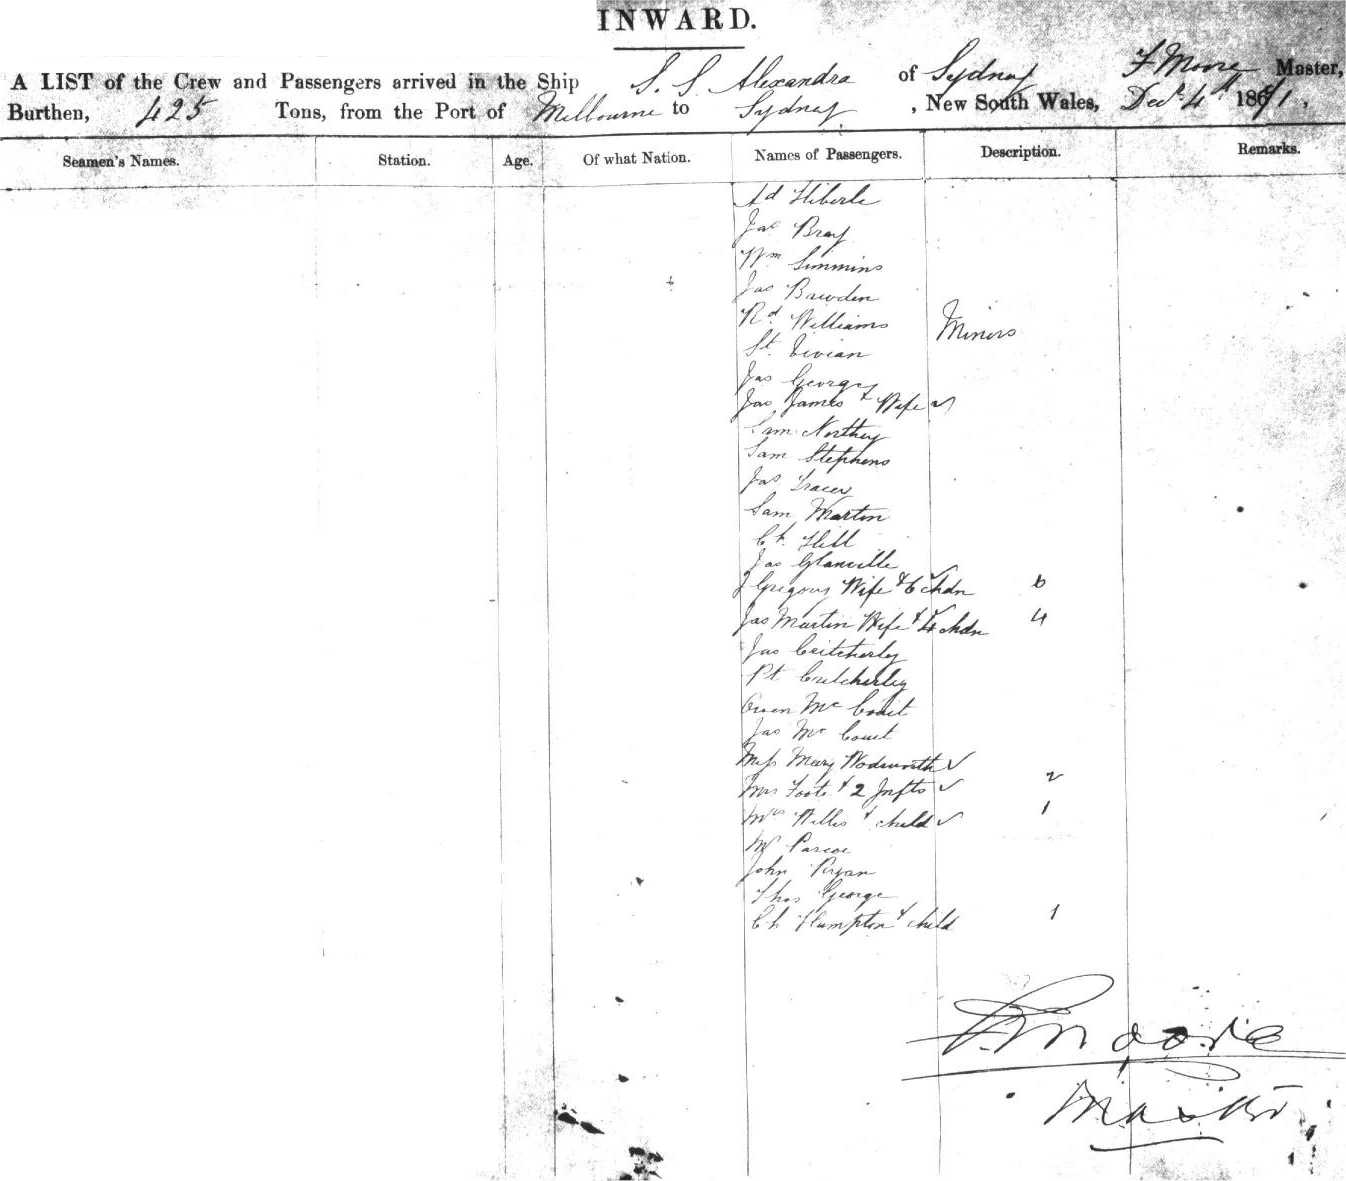 INWARD.
A LIST of the Crew and Passengers arrived in the Ship S. S. Alexandra of Sydney F Moore Master,
Burthen, 425 Tons, from the Port of Melbourne to Sydney, New South Wales, Decr 4th 1871,
Seamen's Names. Station. Age. Of what Nation. Names of Passengers. Description. Remarks.
Hiberle
Jas Bray
Wm Simmins
Jas Bawden
Rd Williams Miners
St. Vivian
Jas George
Jas James & Wife
Sam Northey
Sam Stephens
Jas Tracey
Sam Martin
Ch. Hill
Jas Glanville
J Gregory Wife & 6 chdn 6
Jas Martin Wife & 4 chdn 4
Jas Critcherley
Pt Critcherley
Owen Mc Court
Jas Mc Court
Miss Mary Wodsworth
Mrs Foote & 2 Infts 2
Mrs Willis & child 1
Mr Pascoe
John Ryan
Thos George
Ch Hampton & child 1
F Moore
Master